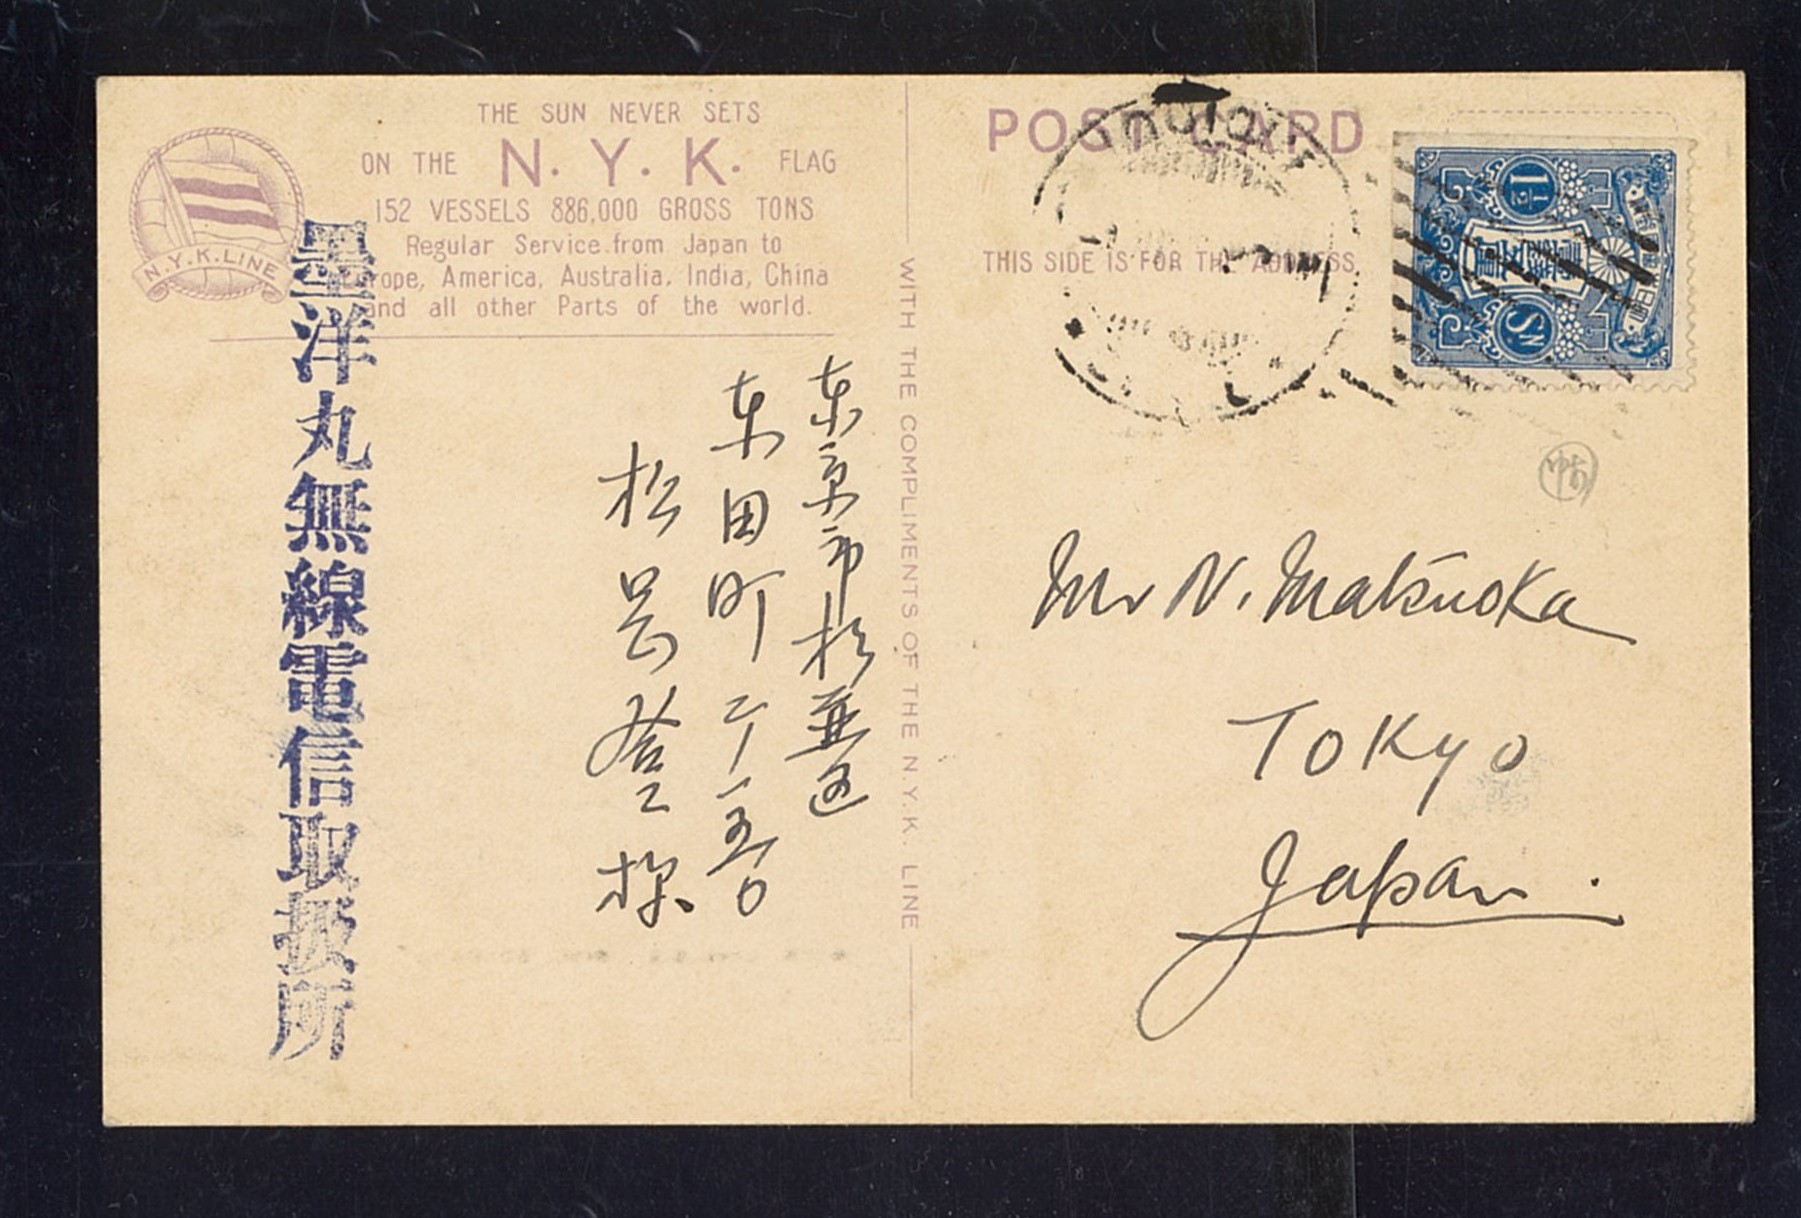 THE SUN NEVER SETS
ON THE N. Y. K. FLAG
152 VESSELS 886,000 GROSS TONS
Regular Service from Japan to
rope, America, Australia, India, China
and all other Parts of the world.
N.Y.K.LINE
墨洋丸無線電信取扱所
東京市杉並区
東田町
松岡登
様
WITH THE COMPLIMENTS OF THE N.Y.K. LINE
POST CARD
THIS SIDE IS FOR THE ADDRESS
1½
SN
Mr N. Matsuoka
TOKyo
Japan.